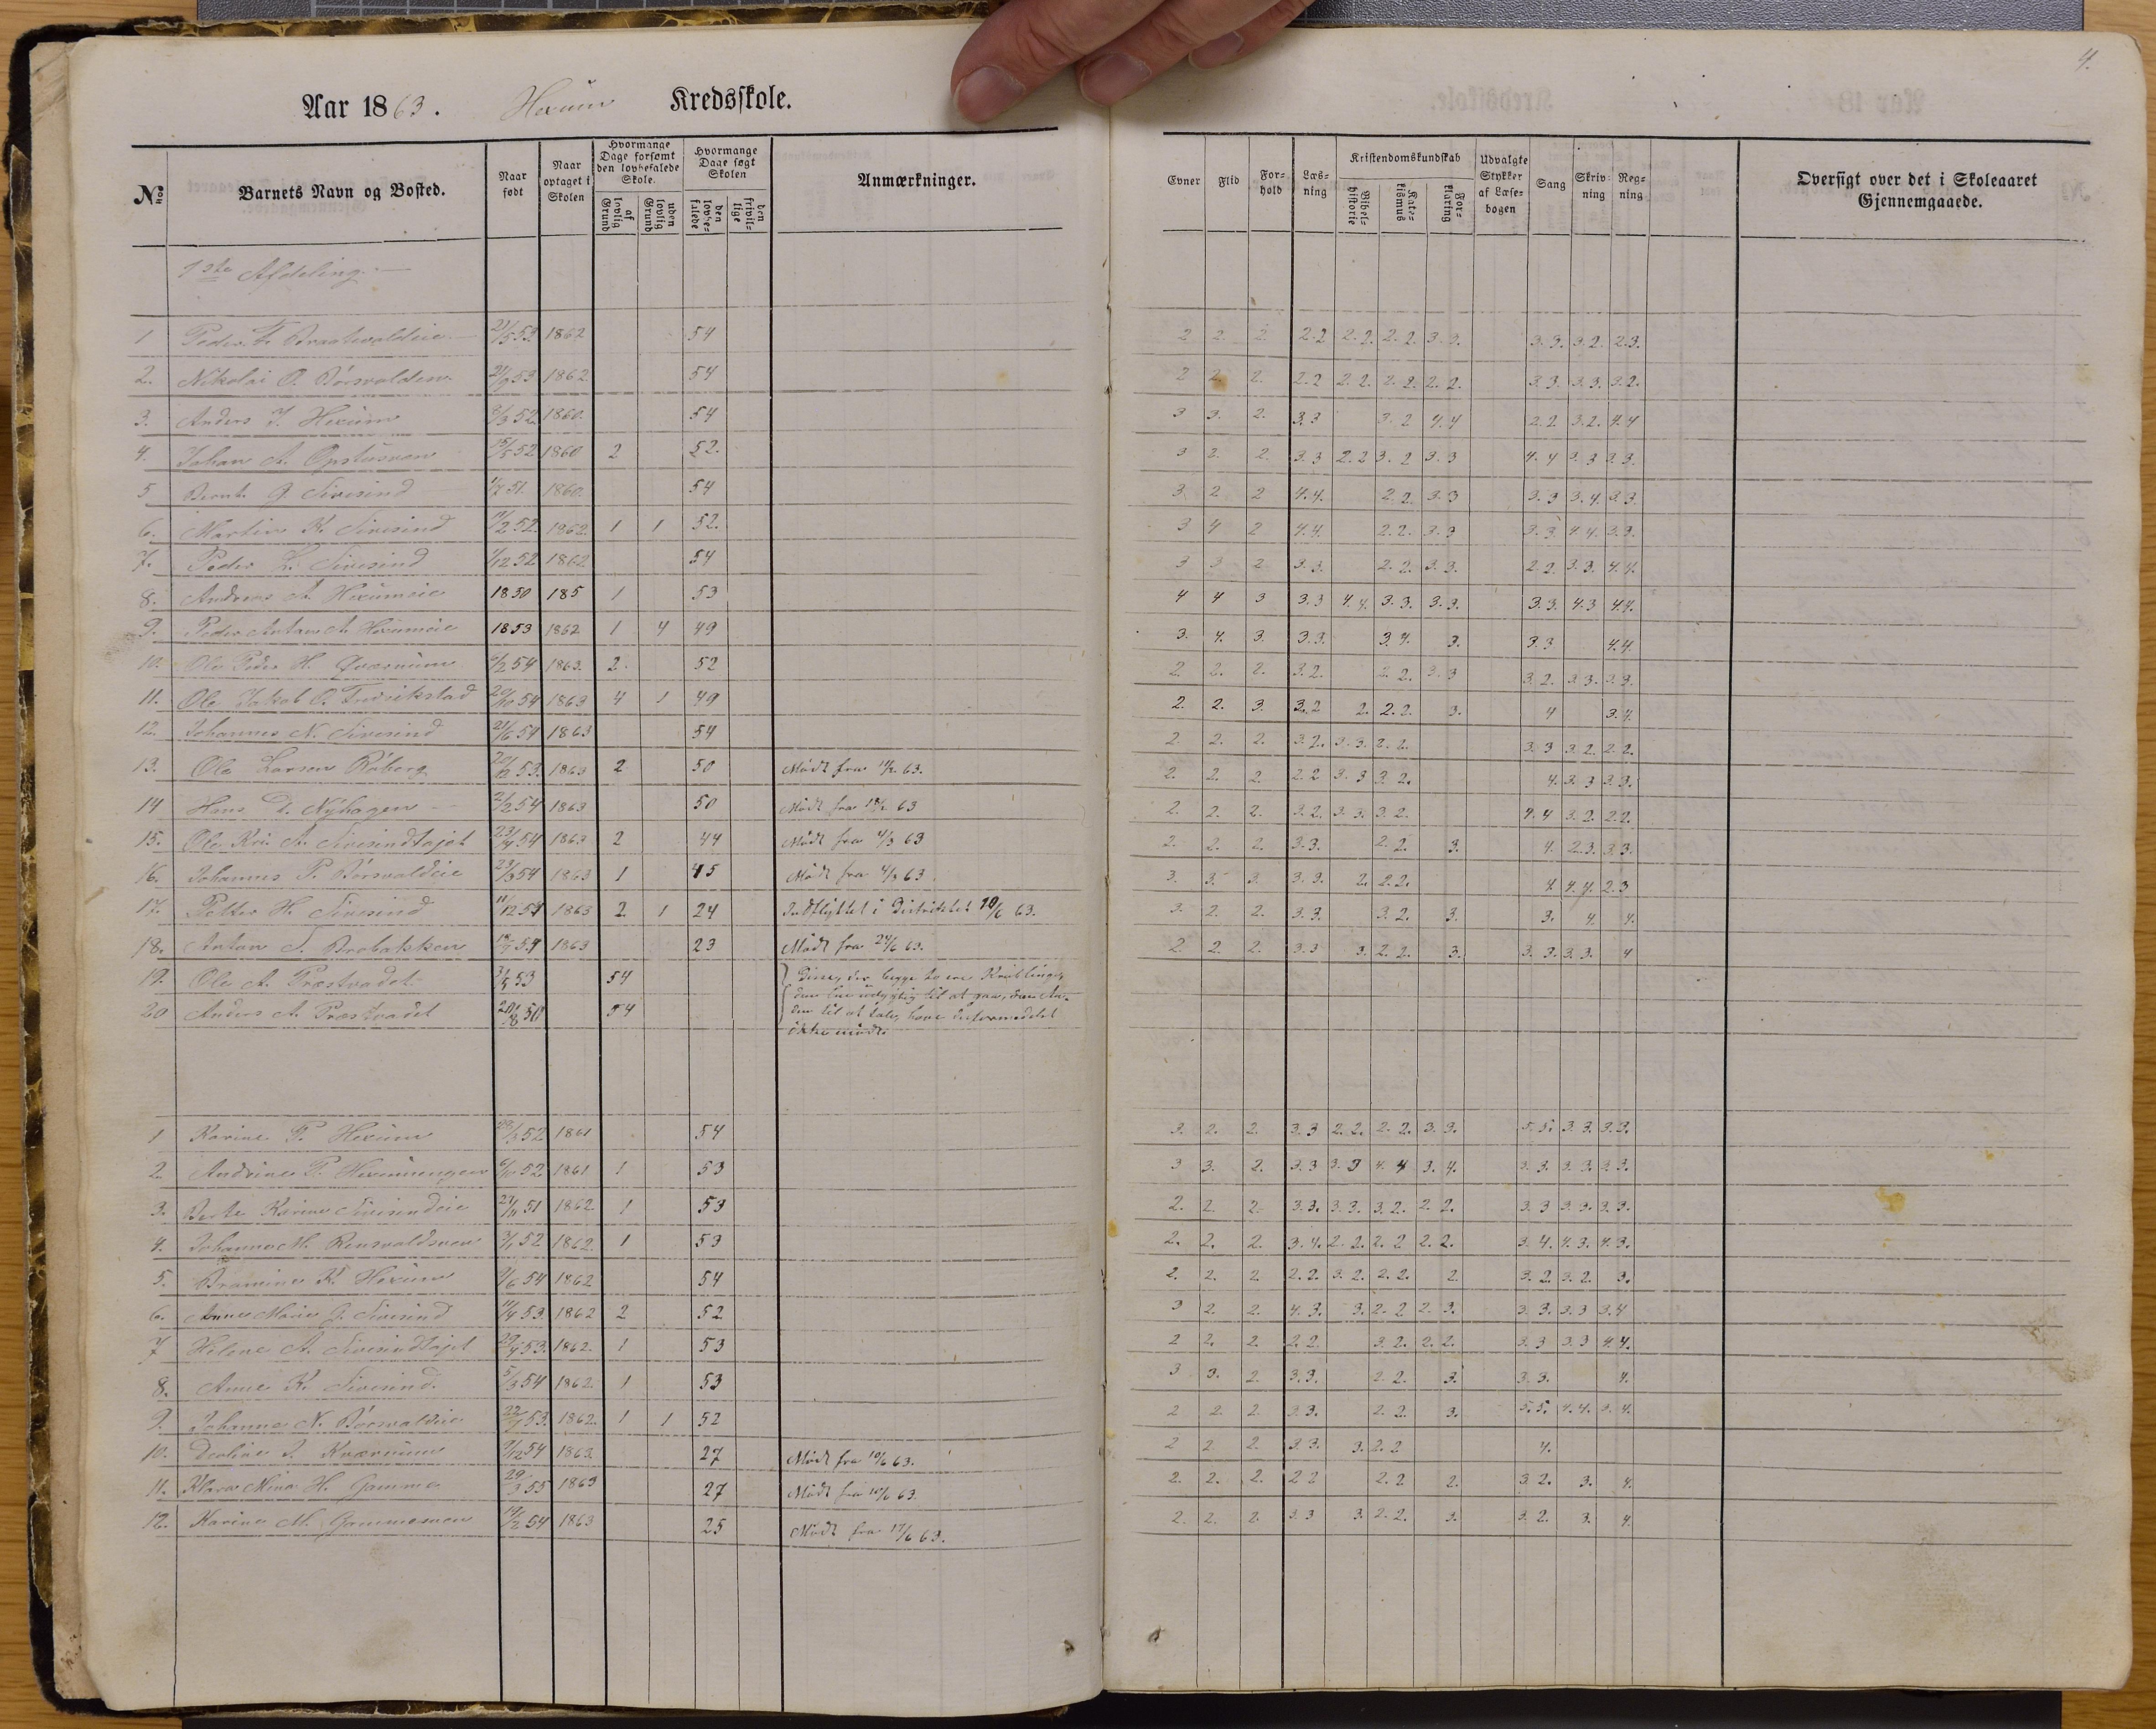 4.
Aar 1863. Hexum Kredsskole.
Nos Barnets Navn og Bosted. Naar født Naar optaget i Skolen Hvormange Dage forsømt den lovbefalede Skole. af lovlig Grund uden lovlig Grund Hvormange Dage søgt Skolen den lovbefalede den frivillige Anmærkninger. Evner Flid Forhold Læsning Kristendomskundskab Bibelhistorie Katekismus Forklaring Udvalgte Stykker af Læsebogen Sang Skrivning Regning Oversigt over det i Skoleaaret Gjennemgaaede.
1ste Afdeling.
1 Peder 1862 54 2 2. 2. 2.2 2.2. 2.2. 3.3. 3.3. 3.2. 2.3.
2. Nikolai O. 1862. 54 2 2. 2. 2.2 2.2. 2.2. 2.2. 3.3. 3.3. 3.2.
3. Anders J. Hexum 8/3 52. 1860. 54 3 3. 2. 3.3 3.2 4.4 2.2. 3.2. 4.4
4. Johan A. 15/5 52 1860 2 52. 3 2. 2. 3.3 2.2 3.2 3.3 4.4 3.3 3.3.
5 Bernt G. Sivesind 1860. 54 3 2 2 4.4. 2.2. 3.3 3.3 3.4. 3.3
6. Martin K. Sivesind 1862. 1 1 52. 3 4 2 4.4. 2.2. 3.3 3.3. 4.4. 3.3.
7. Peder L. Sivesind 1862 54 3 3 2 3.3. 2.2. 3.3. 2.2. 3.3. 4.4.
8. Andreas A. Hexumeie 1850 185 1 53 4 4 3 3.3 4.4. 3.3. 3.3. 3.3. 4.3 4.4.
9. Peder Anton A. Hexumeie 1853 1862 1 4 49 3. 4. 3. 3.3. 3.4. 3. 3.3 4.4
10. Ole Peder H. Qværnum 1863. 2. 52 2. 2. 2. 3.2. 2.2. 3.3 3.2. 3.3. 3.3.
11. Ole Jakob O. Fredrikstad 20/10 54 1863 4 1 49 2. 2. 3. 3.2 2. 2.2. 3. 4 3.4.
12. Johannes N. Sivesind 21/6 54 1863 54 2 2. 2. 3.2. 3.3. 2.2. 3.3 3.2. 2.2.
13. Ole Larsen Råberg 1863 2 50 Mødt fra 63. 2. 2. 2. 2.2 3.3 3.2. 4. 3.3 3.3.
14 Hans Nyhagen 2/2 54 1863 50 Mødt fra 63 2. 2. 2. 3.2. 3.3. 3.2. 4.4 3.2. 2.2.
15. Ole Kri. A. Sivesindtajet 23/4 54 1863 2 44 Mødt fra 4/3 63 2. 2. 2. 3.3. 2.2. 3. 4. 2.3. 3.3.
16. Johannes P. 23/3 54 1863 1 45 Mødt fra 4/3 63 3. 3. 3. 3.3. 2. 2.2. 4. 4.4. 2.3
17. Petter H. Sivesind 11/12 54 1863 2. 1 24 Indflyttet i Distriktet 10/6 63. 3. 2. 2. 3.3. 3.2. 3. 3. 4. 4.
18. Anton Brobakken 1863 23 Mødt fra 24/6 63. 2. 2. 2. 3.3 3. 2.2. 3. 3. 3. 3.3. 4
19. Ole A. Præstvadet 53 54 Disse, der begge to ere Krøblinge,
den ene udygtig til at gaa, den An-
20 Anders A. Præstvadet 50 54 den til at tale, have deformedelst
ikke mødt.
1 Karine P. Hexum 28/3 52 1861 54 3. 2. 2. 3.3 2.2. 2.2. 3.3. 5.5. 3.3. 3.3.
2. Andrine P. Hexumengen 52. 1861 1 53 3 3. 2. 3.3 3.3 4.4 3.4. 3.3. 3.3. 3.3.
3. Berte Karine Sivesindeie 24/11 51 1862. 1 53 2. 2. 2. 3.3. 3.3. 3.2. 2.2. 3.3 3.3. 3.3.
4. Johanne M. 3/1 52 1862. 1 53 2. 2. 2. 3.4. 2.2. 2.2 2.2. 3.4. 4.3. 4.3.
5. K. Hexum 54 1862 54 2. 2. 2. 2.2. 3.2. 2.2. 2. 3.2. 3.2. 3.
6. Anne Marie G. Sivesind 11/4 53. 1862 2 52 3 2. 2. 4.3. 3. 2.2 2.3. 3.3. 3.3 3.4
7 Helene A. Sivesindtajet 53. 1862. 1 53 2 2. 2. 2.2. 3.2. 2.2. 3.3 3.3 4.4.
8. Anne K. Sivesind. 5/3 54 1862. 1 53 3 3. 2. 3.3. 2.2. 3. 3.3. 4.
9. Johanne N. 53. 1862. 1 1 52 2 2. 2. 3.3. 2.2. 3. 5.5. 4.4. 3.4.
10. Kværnum 54 1863. 27 Mødt fra 10/6 63. 2 2 2. 3.3. 3. 2.2 4.
11. Klara Mina H. Gamme 29/3 55 1863 27 Mødt fra 10/6 63. 2. 2. 2. 2.2 2.2 2. 3.2. 3. 4.
12. Karine M. 54 1863 25 Mødt fra 17/6 63. 2. 2. 2. 3.3 3. 2.2. 3. 3.2. 3. 4.